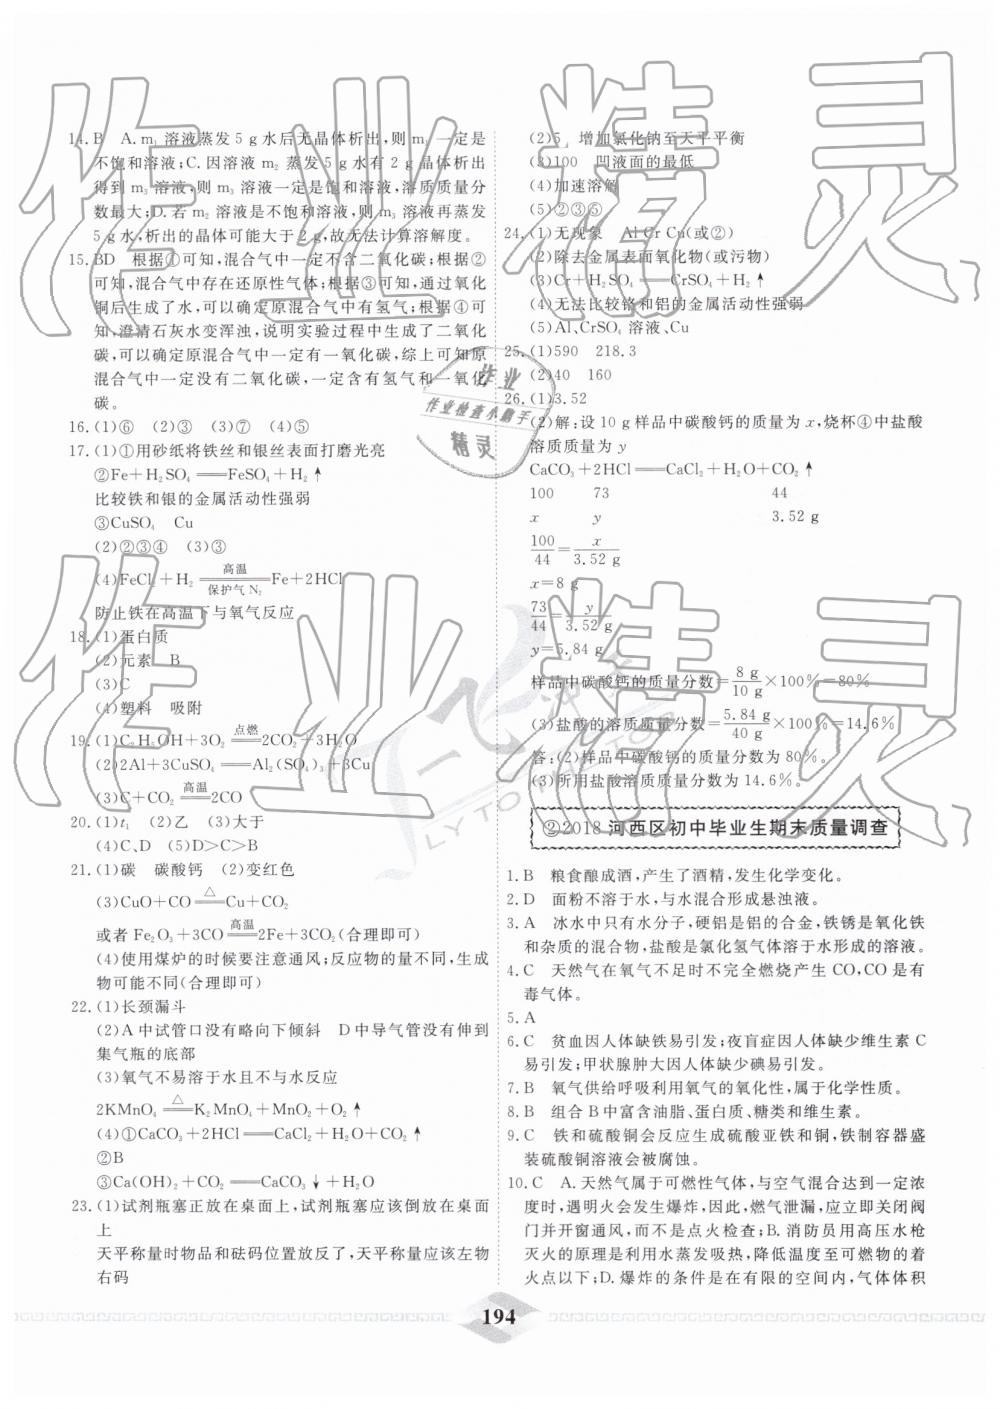 14. B　A. m₁ 溶液蒸发 5 g 水后无晶体析出,则 m₁ 一定是
不饱和溶液;C. 因溶液 m₂ 蒸发 5 g 水有 2 g 晶体析出
得到 m₃ 溶液,则 m₃ 溶液一定是饱和溶液,溶质质量分
数最大;D. 若 m₂ 溶液是不饱和溶液,则 m₃ 溶液再蒸发
5 g 水,析出的晶体可能大于 2 g,故无法计算溶解度。
15. BD　根据①可知,混合气中一定不含二氧化碳;根据②
可知,混合气中存在还原性气体;根据③可知,通过氧化
铜后生成了水,可以确定原混合气中有氢气;根据④可
知,澄清石灰水变浑浊,说明实验过程中生成了二氧化
碳,可以确定原混合气中一定有一氧化碳,综上可知原
混合气中一定没有二氧化碳,一定含有氢气和一氧化
碳。
16. (1)⑥　(2)③　(3)⑦　(4)⑤
17. (1)①用砂纸将铁丝和银丝表面打磨光亮
②Fe+H₂SO₄══FeSO₄+H₂↑
比较铁和银的金属活动性强弱
③CuSO₄　Cu
(2)②③④　(3)③
(4)FeCl₂+H₂ 高温══保护气N₂ Fe+2HCl
防止铁在高温下与氧气反应
18. (1)蛋白质
(2)元素　B
(3)C
(4)塑料　吸附
19. (1)C₂H₅OH+3O₂ 点燃══ 2CO₂+3H₂O
(2)2Al+3CuSO₄══Al₂(SO₄)₃+3Cu
(3)C+CO₂ 高温══ 2CO
20. (1)t₁　(2)乙　(3)大于
(4)C、D　(5)D>C>B
21. (1)碳　碳酸钙　(2)变红色
(3)CuO+CO △══ Cu+CO₂
或者 Fe₂O₃+3CO 高温══ 2Fe+3CO₂(合理即可)
(4)使用煤炉的时候要注意通风;反应物的量不同,生成
物可能不同(合理即可)
22. (1)长颈漏斗
(2)A 中试管口没有略向下倾斜　D 中导气管没有伸到
集气瓶的底部
(3)氧气不易溶于水且不与水反应
2KMnO₄ △══ K₂MnO₄+MnO₂+O₂↑
(4)①CaCO₃+2HCl══CaCl₂+H₂O+CO₂↑
②B
③Ca(OH)₂+CO₂══CaCO₃↓+H₂O
23. (1)试剂瓶塞正放在桌面上,试剂瓶塞应该倒放在桌面
上
天平称量时物品和砝码位置放反了,天平称量应该左物
右码
(2)5　增加氯化钠至天平平衡
(3)100　凹液面的最低
(4)加速溶解
(5)②③⑤
24. (1)无现象　Al Cr Cu(或②)
(2)除去金属表面氧化物(或污物)
(3)Cr+H₂SO₄══CrSO₄+H₂↑
(4)无法比较铬和铝的金属活动性强弱
(5)Al、CrSO₄ 溶液、Cu
25. (1)590　218.3
(2)40　160
26. (1)3.52
(2)解:设 10 g 样品中碳酸钙的质量为 x,烧杯④中盐酸
溶质质量为 y
CaCO₃+2HCl══CaCl₂+H₂O+CO₂↑
100　73　44
x　y　3.52 g
100/44=x/3.52 g
x=8 g
73/44=y/3.52 g
y=5.84 g
样品中碳酸钙的质量分数=8 g/10 g×100%=80%
(3)盐酸的溶质质量分数=5.84 g/40 g×100%=14.6%
答:(2)样品中碳酸钙的质量分数为 80%。
(3)所用盐酸溶质质量分数为 14.6%。
②2018 河西区初中毕业生期末质量调查
1. B　粮食酿成酒,产生了酒精,发生化学变化。
2. D　面粉不溶于水,与水混合形成悬浊液。
3. A　冰水中只有水分子,硬铝是铝的合金,铁锈是氧化铁
和杂质的混合物,盐酸是氯化氢气体溶于水形成的溶液。
4. C　天然气在氧气不足时不完全燃烧产生 CO,CO 是有
毒气体。
5. A
6. C　贫血因人体缺铁易引发;夜盲症因人体缺少维生素 C
易引发;甲状腺肿大因人体缺少碘易引发。
7. B　氧气供给呼吸利用氧气的氧化性,属于化学性质。
8. B　组合 B 中富含油脂、蛋白质、糖类和维生素。
9. C　铁和硫酸铜会反应生成硫酸亚铁和铜,铁制容器盛
装硫酸铜溶液会被腐蚀。
10. C　A. 天然气属于可燃性气体,与空气混合达到一定浓
度时,遇明火会发生爆炸,因此,燃气泄漏,应立即关闭阀
门并开窗通风,而不是点火检查;B. 消防员用高压水枪
灭火的原理是利用水蒸发吸热,降低温度至可燃物的着
火点以下;D. 爆炸的条件是在有限的空间内,气体体积
194
作业精灵
作业精灵
作业
作业检查小助手
精灵